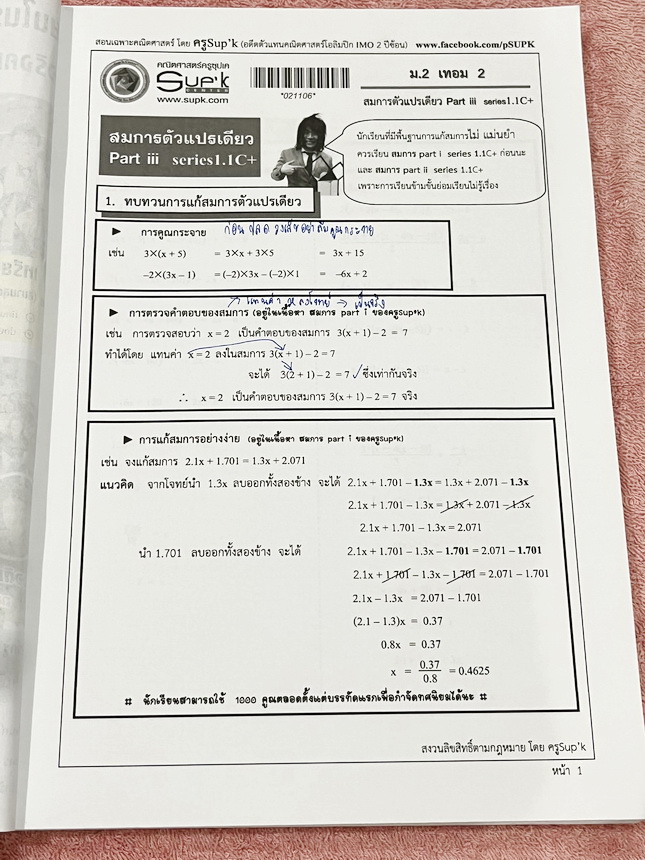 สอนเฉพาะคณิตศาสตร์ โดย ครูSup'k (อดีตตัวแทนคณิตศาสตร์โอลิมปิก IMO 2 ปีซ้อน) www.facebook.com/pSUPK
คณิตศาสตร์ครูซุปเค
Sup'k
CENTER
www.supk.com
*021106*
ม.2 เทอม 2
สมการตัวแปรเดียว Part iii series1.1C+
สมการตัวแปรเดียว
Part iii series1.1C+
นักเรียนที่มีพื้นฐานการแก้สมการไม่ แม่นยำ
ควรเรียน สมการ part i series 1.1C+ ก่อนนะ
และ สมการ part ii series 1.1C+
เพราะการเรียนข้ามขั้นย่อมเรียนไม่รู้เรื่อง
1. ทบทวนการแก้สมการตัวแปรเดียว
► การคูณกระจาย
เช่น 3×(x + 5) = 3×x + 3×5 = 3x + 15
–2×(3x – 1) = (–2)×3x – (–2)×1 = –6x + 2
→ เป็นจริง
► การตรวจคำตอบของสมการ (อยู่ในเนื้อหา สมการ part i ของครูSup'k)
เช่น การตรวจสอบว่า x = 2 เป็นคำตอบของสมการ 3(x + 1) – 2 = 7
ทำได้โดย แทนค่า x = 2 ลงในสมการ 3(x + 1) – 2 = 7
จะได้ 3(2 + 1) – 2 = 7 ✓ ซึ่งเท่ากันจริง
∴ x = 2 เป็นคำตอบของสมการ 3(x + 1) – 2 = 7 จริง
► การแก้สมการอย่างง่าย (อยู่ในเนื้อหา สมการ part i ของครูSup'k)
เช่น จงแก้สมการ 2.1x + 1.701 = 1.3x + 2.071
แนวคิด จากโจทย์นำ 1.3x ลบออกทั้งสองข้าง จะได้ 2.1x + 1.701 – 1.3x = 1.3x + 2.071 – 1.3x
2.1x + 1.701 – 1.3x = 1.3x + 2.071 – 1.3x
2.1x + 1.701 – 1.3x = 2.071
นำ 1.701 ลบออกทั้งสองข้าง จะได้ 2.1x + 1.701 – 1.3x – 1.701 = 2.071 – 1.701
2.1x + 1.701 – 1.3x – 1.701 = 2.071 – 1.701
2.1x – 1.3x = 2.071 – 1.701
(2.1 – 1.3)x = 0.37
0.8x = 0.37
x = 0.37/0.8 = 0.4625
# นักเรียนสามารถใช้ 1000 คูณตลอดตั้งแต่บรรทัดแรกเพื่อกำจัดทศนิยมได้นะ #
สงวนลิขสิทธิ์ตามกฎหมาย โดย ครูSup'k
หน้า 1